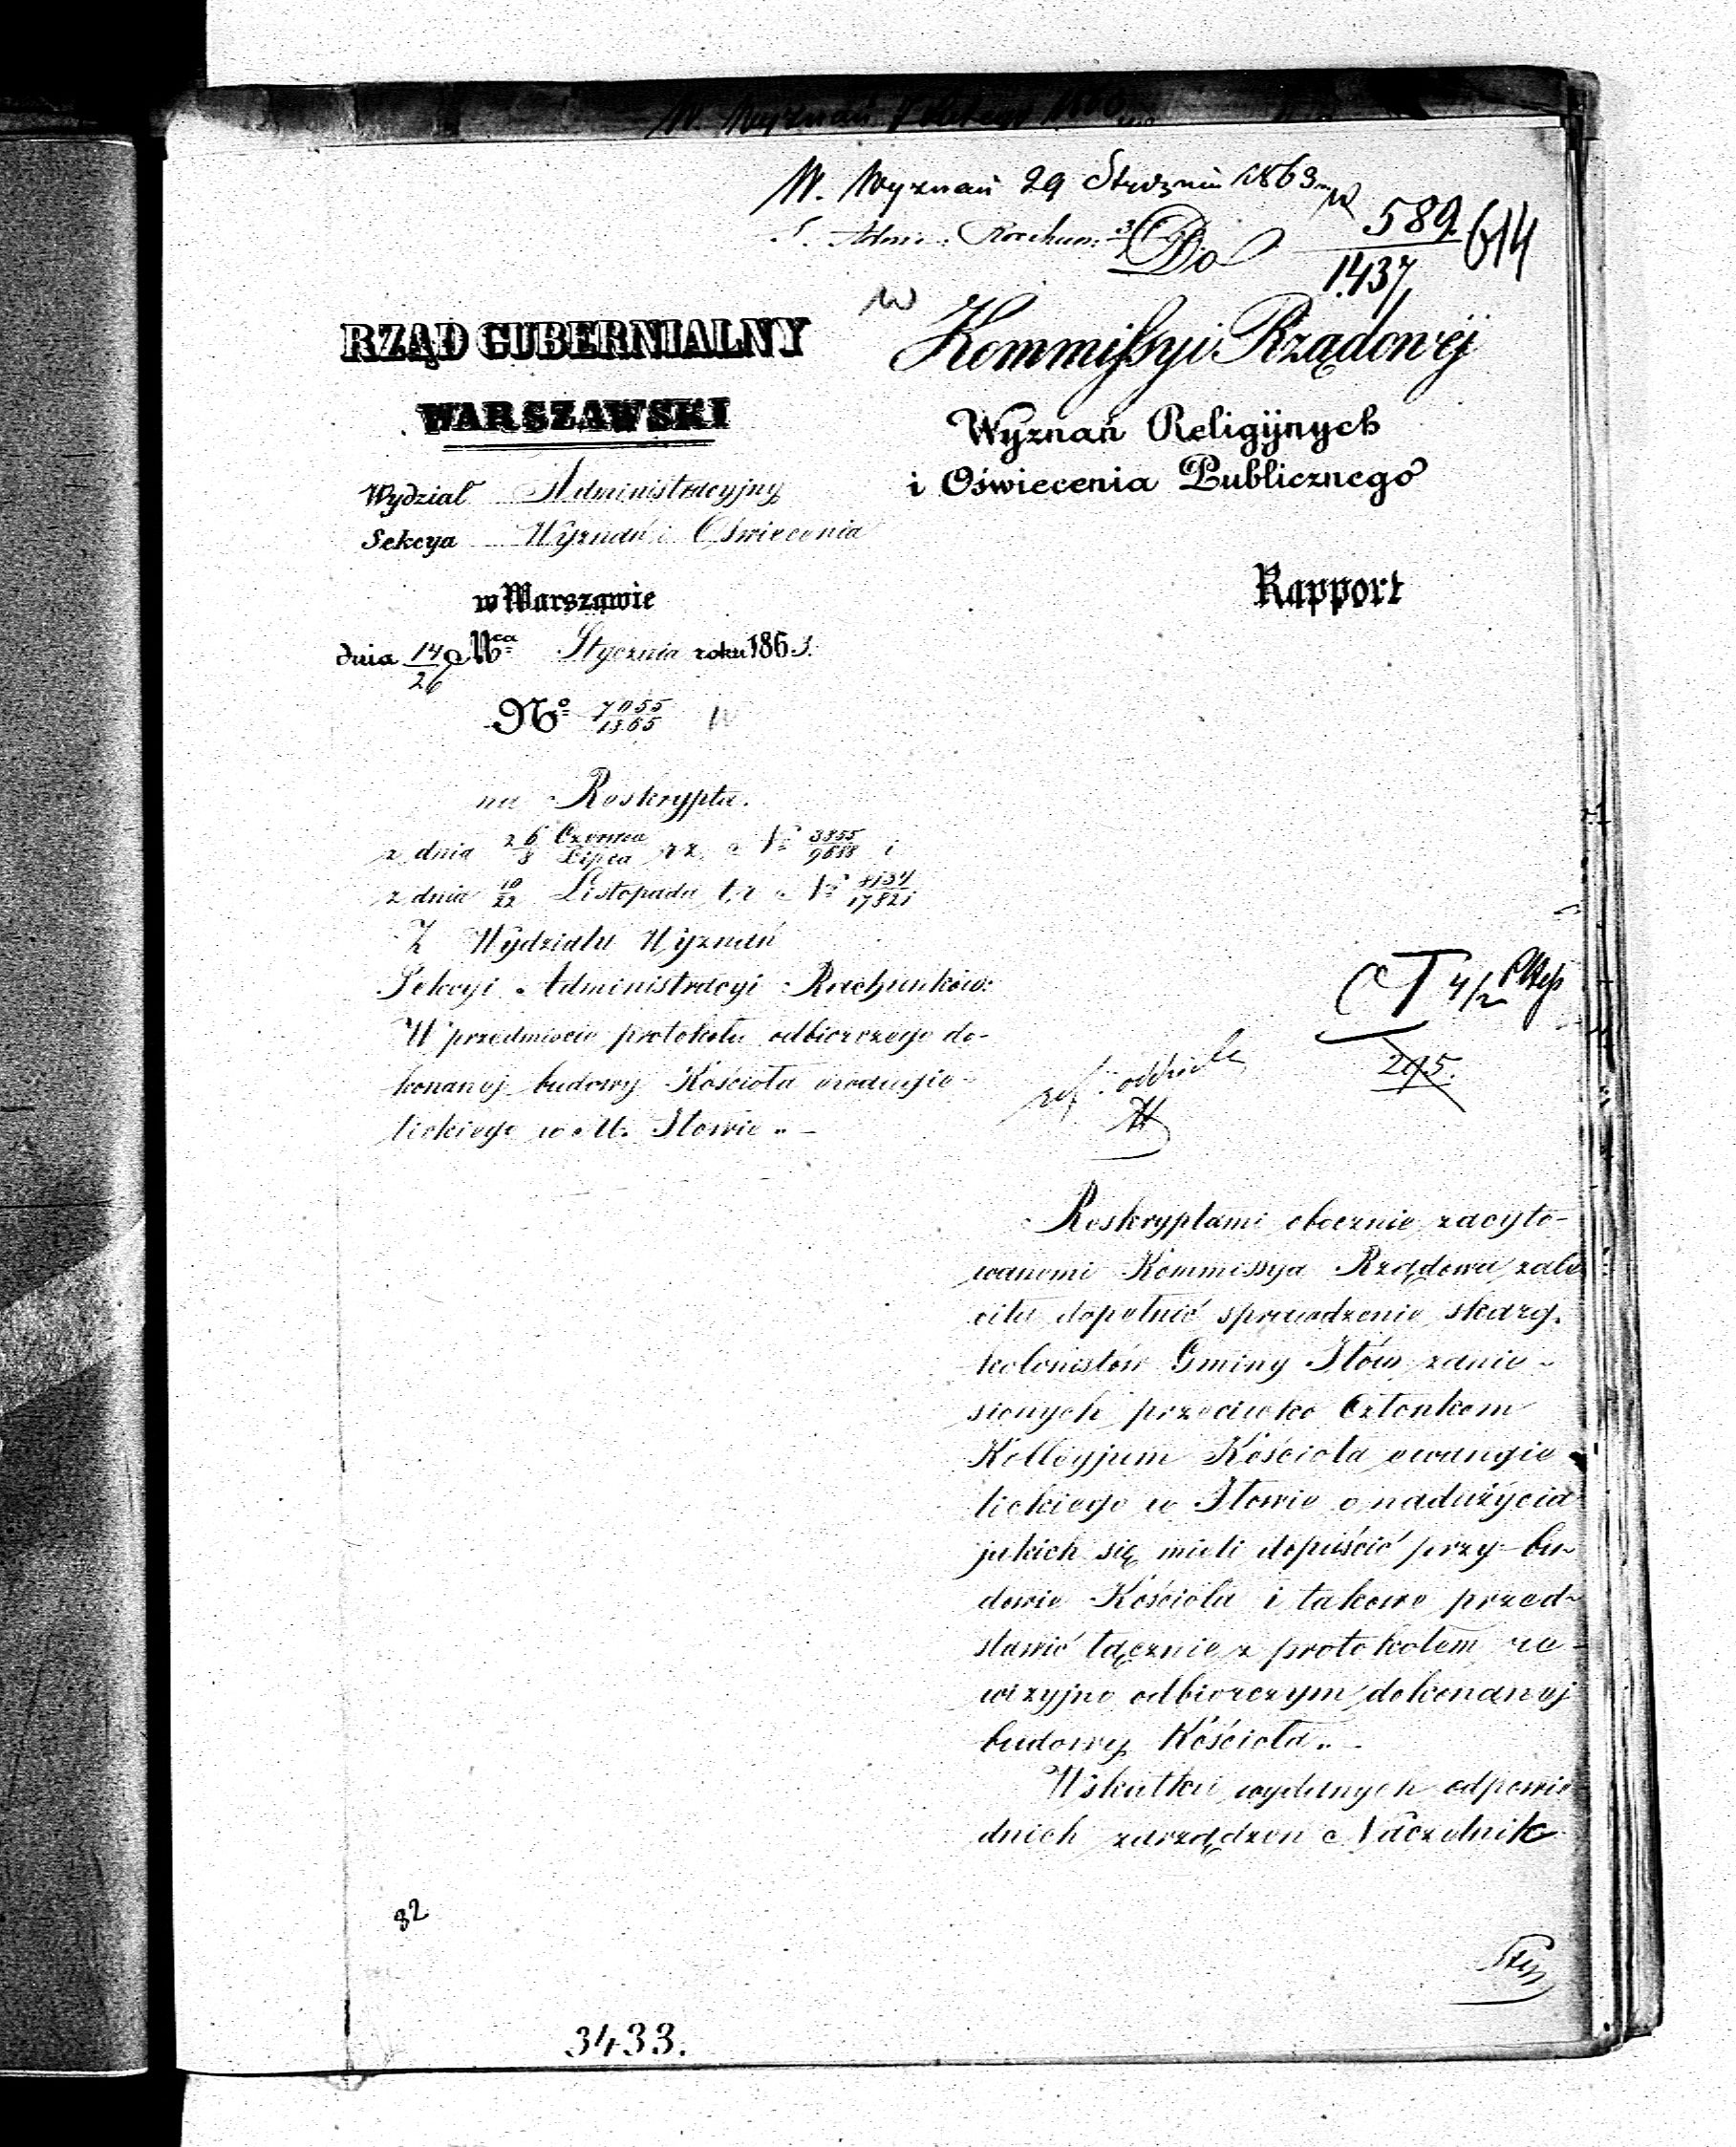 W. Wyznań 29 Stycznia 1863
S. Adm: Rachun:
589
1437
614
Do
Kommissyi Rządowéj
Wyznań Religijnych
i Oświecenia Publicznego
Rapport
RZĄD GUBERNIALNY
WARSZAWSKI
Wydział Administracyjny
Sekcya Wyznań i Oświecenia
w Warszawie
dnia 14/26 Mca Stycznia roku 1863.
No 7055/1365
na Reskrypta.
z dnia 26 Czerwca/8 Lipca r z. No 3855/9688 i
z dnia 10/22 Listopada t, r No 17821
Z Wydziału Wyznań
Sekcyi Administracyi Rachunków:
W przedmiocie protokołu odbiorczego do-
konanej budowy Kościoła ewangie-
lickiego w M. Iłowie „ —
4/2
215.
Reskryptami obocznie zacyto-
wanemi Kommissya Rządowa zale
ciła dopełnić sprawdzenie skarg,
kolonistów Gminy Iłów zanie-
sionych przeciwko Członkom
Kollegjum Kościoła ewangie
lickiego w Iłowie o nadużycia
jakich się mieli dopuścić przy bu-
dowie Kościoła i takowe przed-
stawić łącznie z protokołem re-
wizyjno odbiorczym dokonanej
budowy Kościoła „ —
Wskutku wydanych odpowie
dnich zarządzen Naczelnik
82
3433.